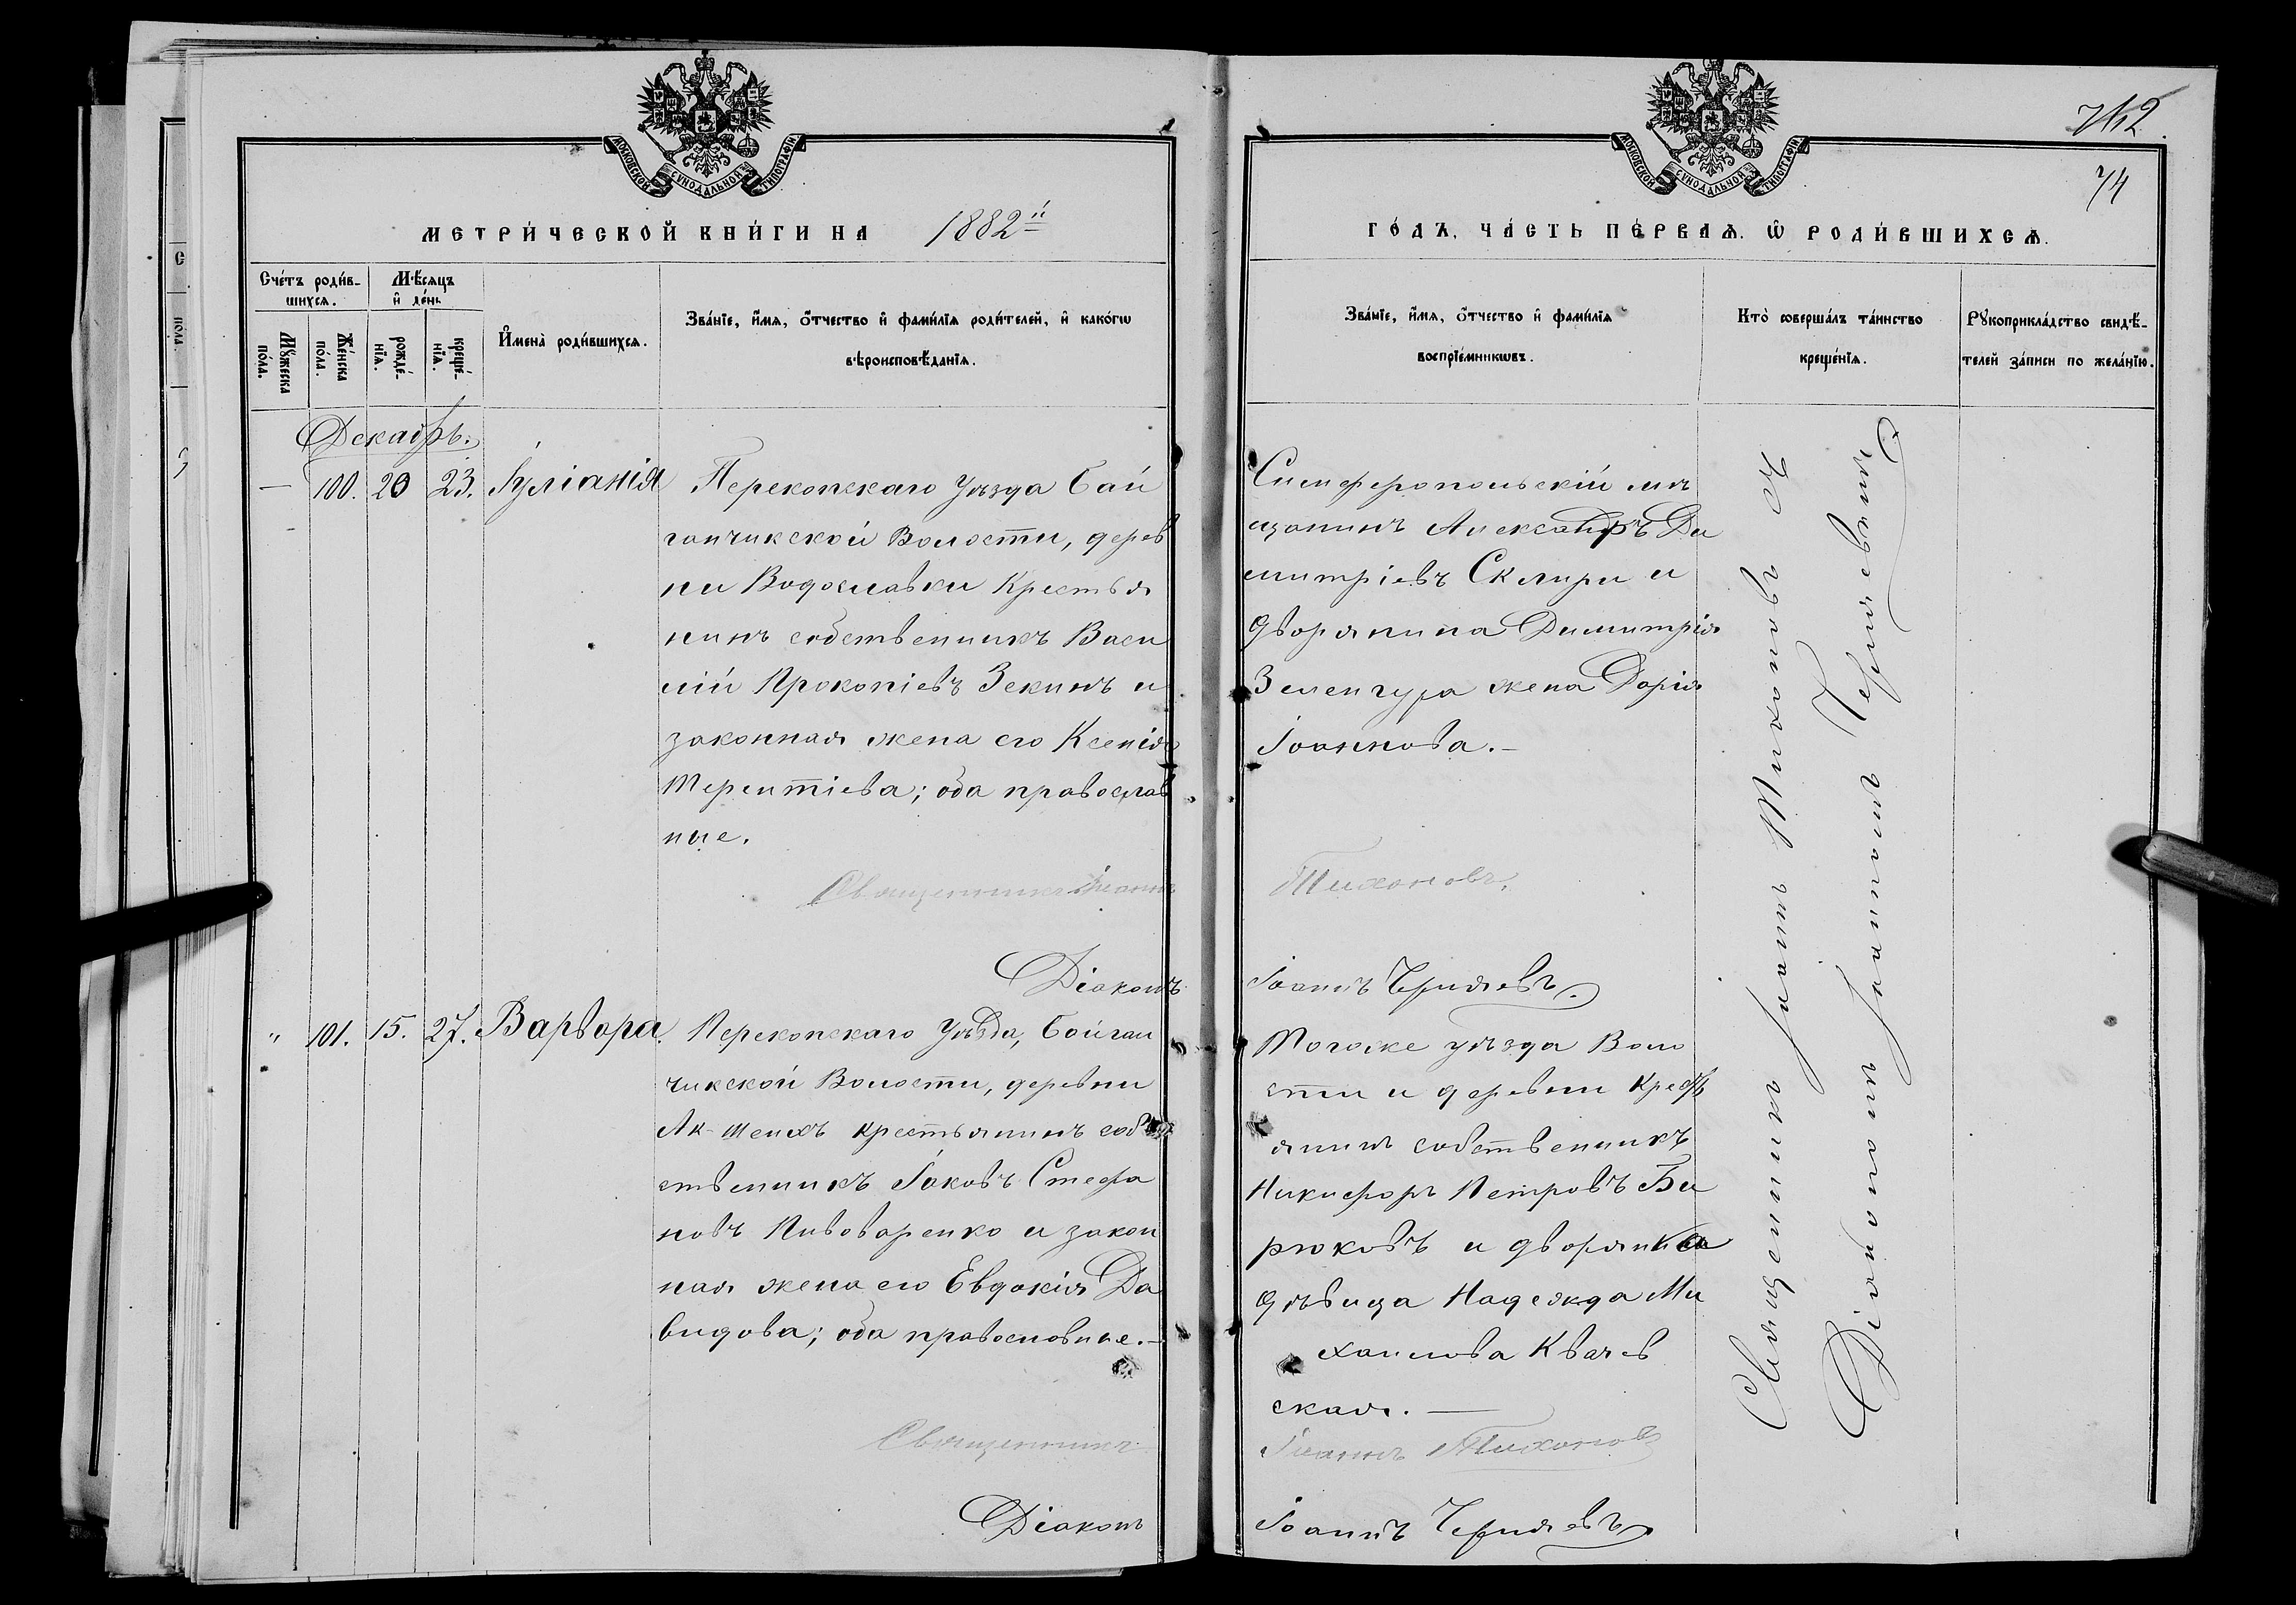 МОСКОВСКОЙ СѴНОДАЛЬНОЙ ТИПОГРАФІИ
МЕТРИ́ЧЕСКОЙ КНИ́ГИ НА 1882й
Сче́тъ роди́в-
шихсѧ.
Мѣ́сѧцъ
и҆ де́нь
Мꙋ́жеска
по́ла.
Же́нска
по́ла.
рожде́-
нїѧ.
креще́-
нїѧ.
И҆мена̀ роди́вшихсѧ.
Зва́нїе, и҆́мѧ, ѻ҆́тчество и҆ фами́лїѧ роди́телей, и҆ како́гѡ
вѣроисповѣ́данїѧ.
Декабрь.
— 100. 20 23. Іуліанія
Перекопскаго Уѣзда Бай
гончикской Волости, дерев
ни Водославки Крестья
нинъ собственникъ Васи
лій Прокопіевъ Зекинъ и
законная жена его Ксенія
Терентіева; оба православ
ные.
Священникъ Іоаннъ
Діаконъ
" 101. 15. 27. Варвора.
Перекопскаго Уѣзда, Байгон
чикской Волости, деревни
Ак-Шеихъ крестьянинъ соб
ственникъ Іаковъ Стефа
новъ Пивоваренко и закон
ная жена его Евдокія Да
видова; оба православные.—
Священникъ
Діаконъ
742
74
МОСКОВСКОЙ СѴНОДАЛЬНОЙ ТИПОГРАФІИ
ГО́ДЪ, ЧА́СТЬ ПЕ́РВАѦ. Ѡ҆ РОДИ́ВШИХСѦ.
Зва́нїе, и҆́мѧ, ѻ҆́тчество и҆ фами́лїѧ
воспрїе́мникѡвъ.
Кто̀ соверша́лъ та́инство
креще́нїѧ.
Рꙋкоприкла́дство свидѣ́-
телей за́писи по жела́нїю.
Симферопольскій мѣ
щанинъ Александръ Ди
митріевъ Скляри и
дворянина Димитрія
Зеленгура жена Дарія
Іоаннова.—
Тихоновъ.
Іоаннъ Черняевъ.
Тогоже уѣзда Воло
сти и деревни Кресть
янинъ собственникъ
Никифоръ Петровъ Би
рюковъ и дворянка
дѣвица Надежда Ми
хаилова Квачев
ская.—
Іоаннъ Тихоновъ
Іоаннъ Черняевъ
Священникъ Іоаннъ Тихоновъ съ
Діакономъ Іоанномъ Черняевымъ